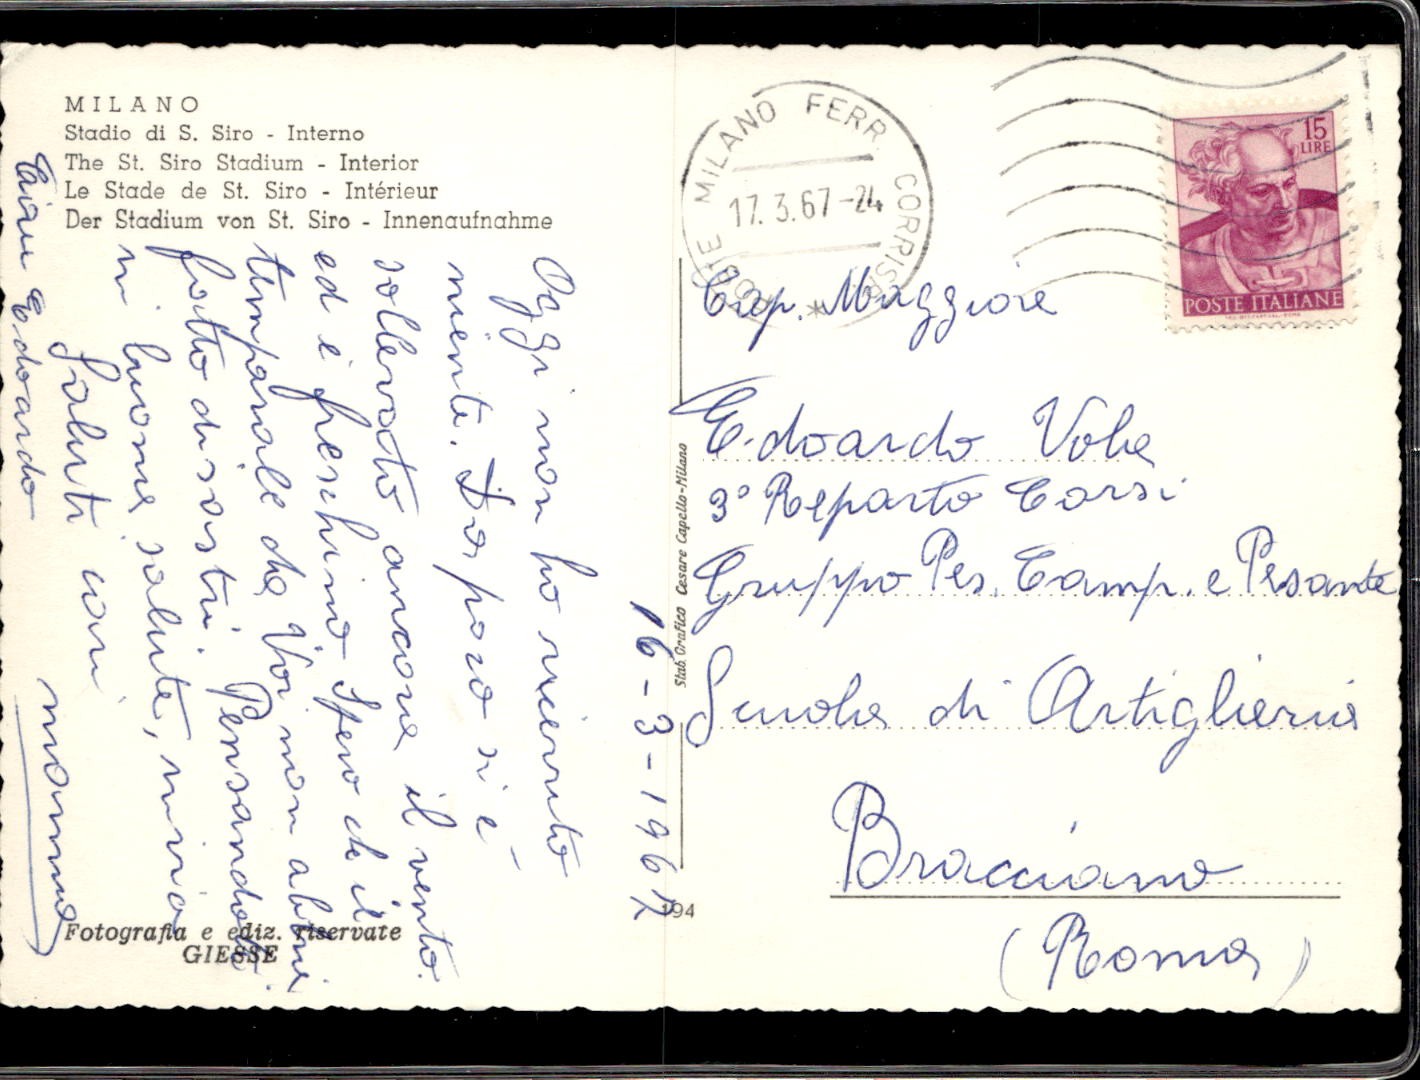 MILANO
Stadio di S. Siro - Interno
The St. Siro Stadium - Interior
Le Stade de St. Siro - Intérieur
Der Stadium von St. Siro - Innenaufnahme
16-3-1967
Oggi non ho ricevuto
niente. Da poco si è
sollevato ancora il vento.
ed è freschino. Spero che il
temporale da Voi non abbia
fatto disastri. Pensandoti
in buona salute, invio
Saluti cari
mamma
Ciao Edoardo
Fotografia e ediz. riservate
GIESSE
Stab. Grafico Cesare Capello-Milano
194
POSTE MILANO FERR. CORRISP.
17.3.67-24
15
LIRE
POSTE ITALIANE
Cap. Maggiore
Edoardo
3° Reparto Corsi
Gruppo Pes. Camp. e Pesante
Scuola di Artiglieria
Bracciano
(Roma)